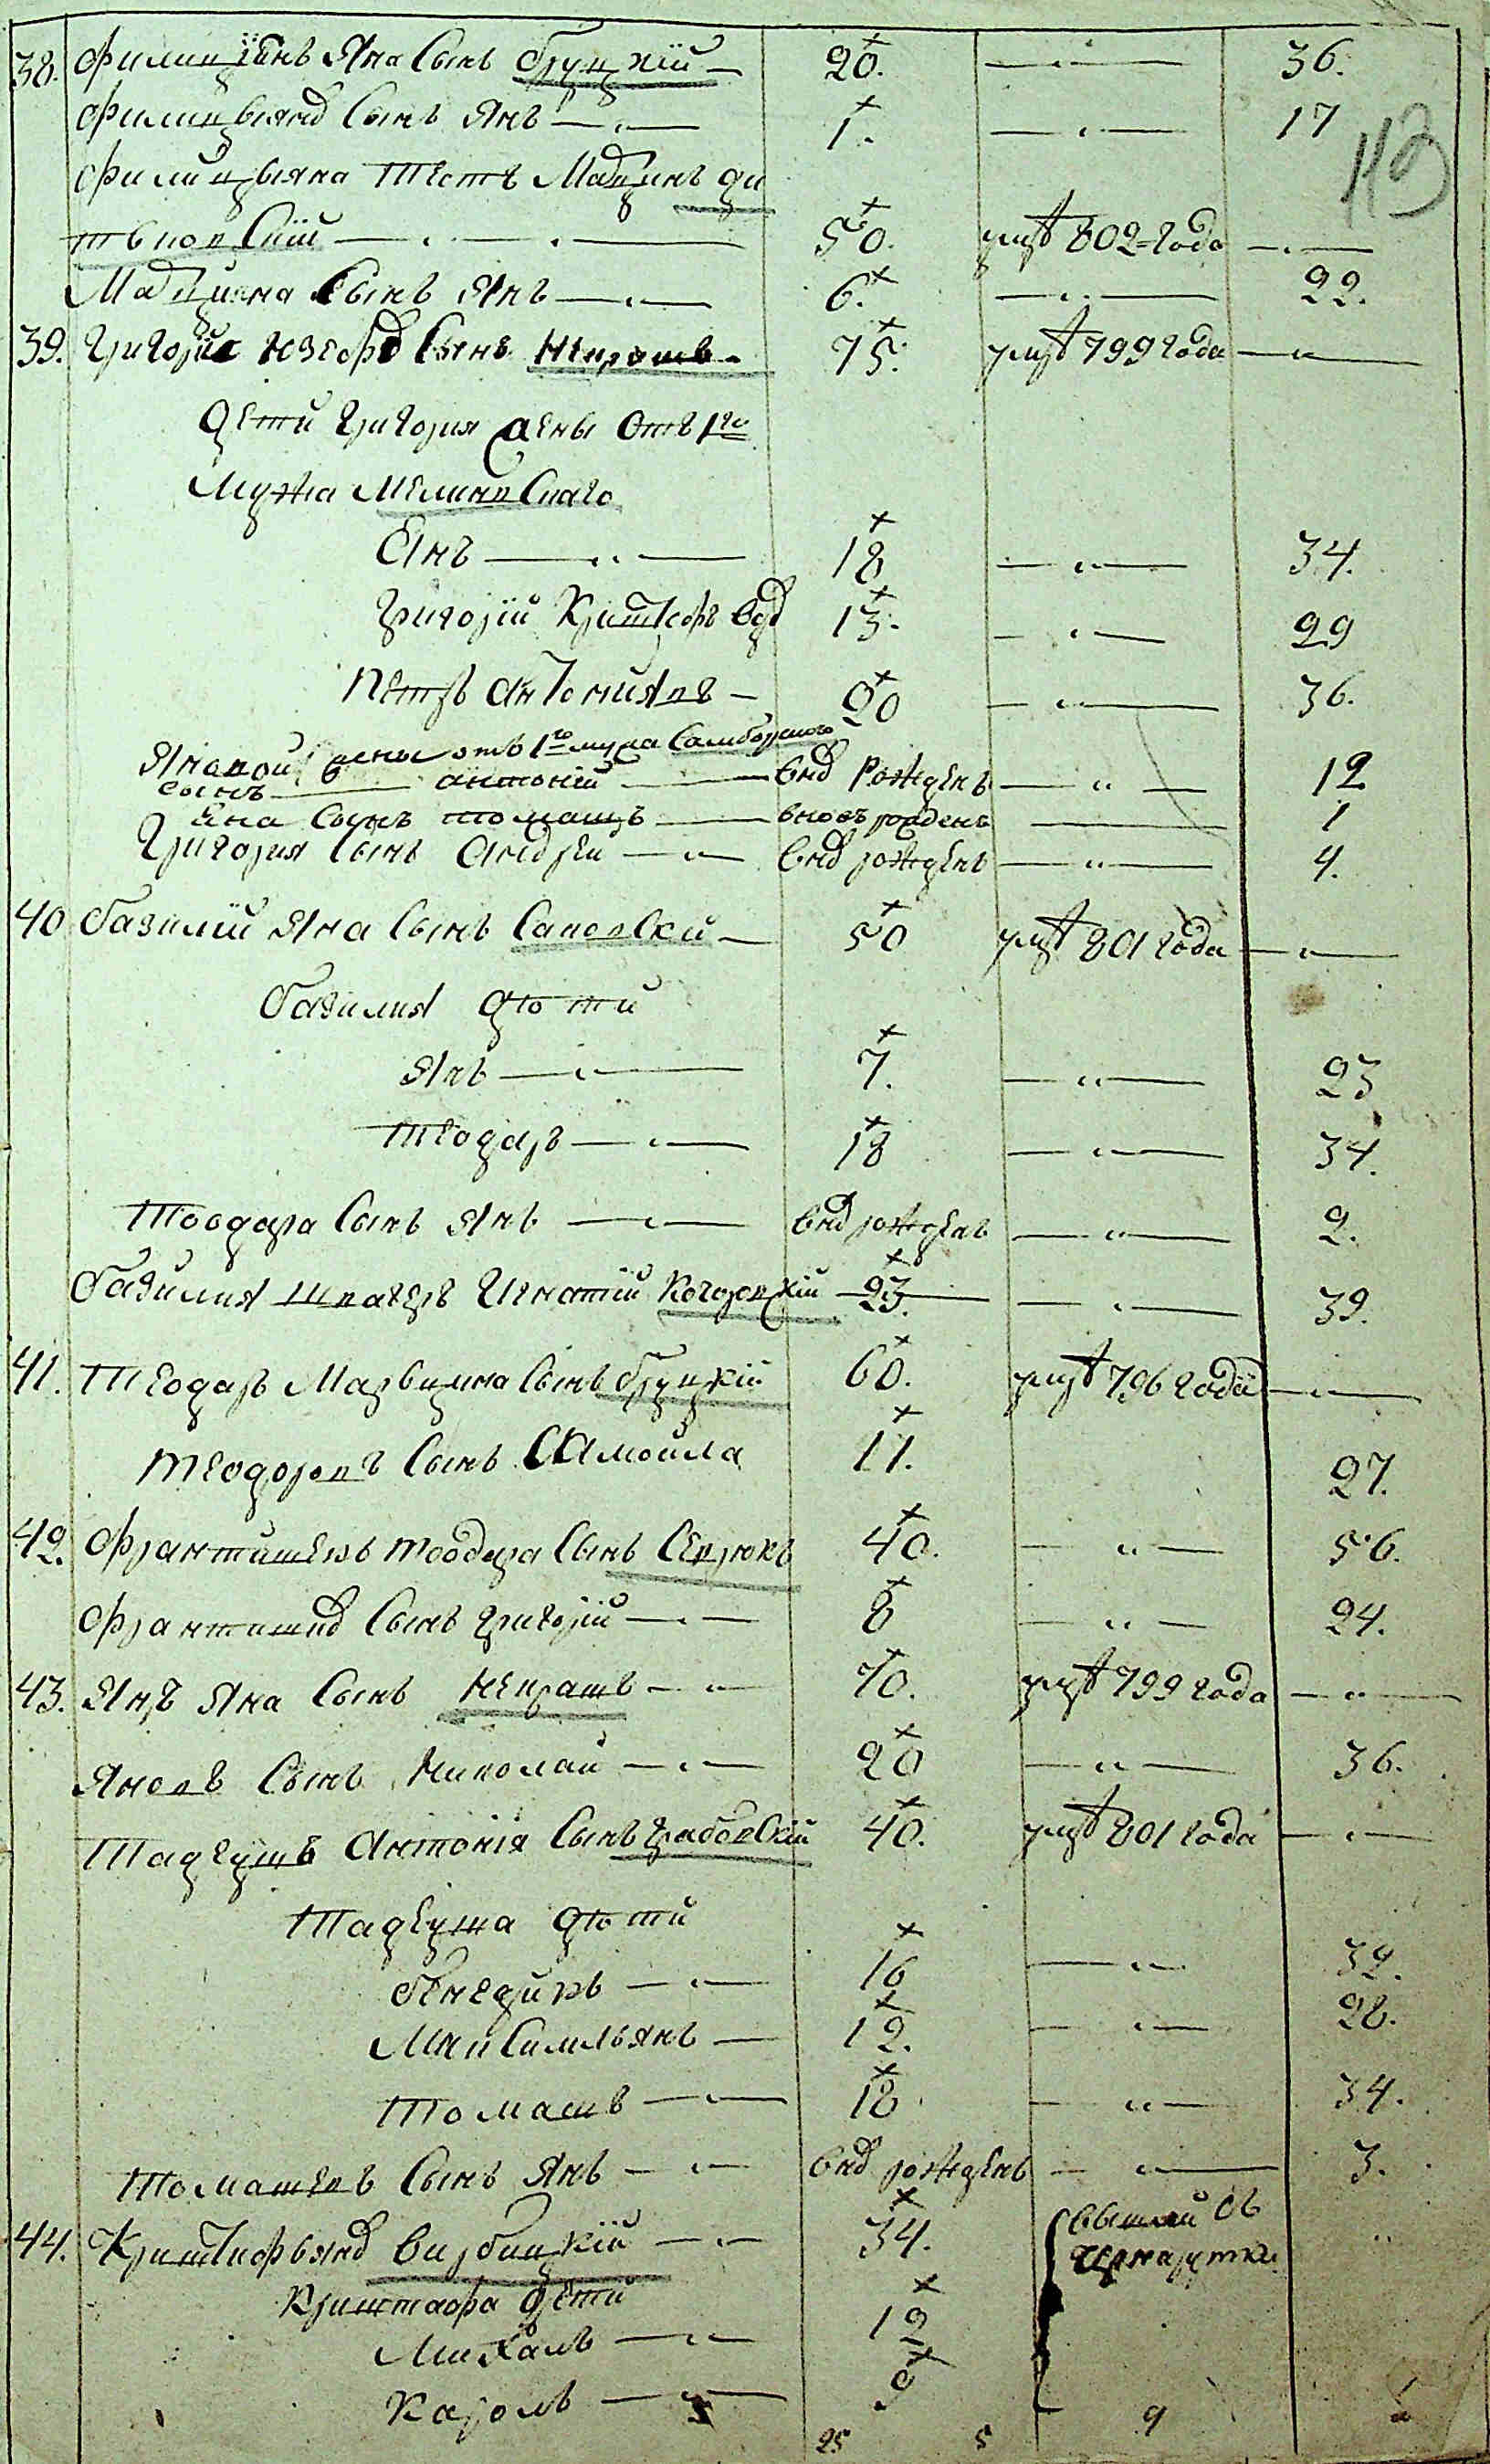 38. Филиціянъ Яна Сынъ Бруцкій 20. 36.
Филицыянов Сынъ Янъ 1. 17
113
Филицыяна Тесть Марцинъ Ди
твковский 50. умре 802 года
Марцияна Сынъ Янъ 6. 22.
39. Григорій Юзефов Сынъ Некрашъ 75. умре 799 года
Дети Григория жены Отъ 1го
Мужа
Янъ 18 34.
Григорій Криштофов 13. 29
Петръ Антониявъ 20 36.
Яновой жены отъ 1го мужа Самборского
сынъ антоній вно Рожденъ 12
Яна Сынъ томашъ вновъ рожденъ 1
Григория Сынъ Андрей вно рожденъ 4.
40 Базилій Яна Сынъ 50 умре 801 года
Базилия дѣти
Янъ 7. 23
Теодаръ 18 34.
Теодара Сынъ Янъ вно рожденъ 2.
Базилия швагеръ Игнатій 23. 39.
41. Теодаръ Марцияна Сынъ Бруцкій 60. умре 796 года
Теодоровъ Сынъ Самойла 11. 27.
42. Франтишекъ теодара Сынъ Сердюкъ 40. 56.
Франтишков Сынъ Григорій 8 24.
43. Янъ Яна Сынъ Некрашъ 70. умре 799 года
Яновъ Сынъ Николай 20 36.
Тадеушъ Антонія Сынъ Грабовскій 40. умре 801 года
Тадеуша дѣти
Бенедикъ 16 32.
Максимильянъ 12. 28.
Томашъ 18 34.
Томашевъ Сынъ Янъ вно рожденъ 3.
44. Криштофьянов Вирбицкій 34. вышли въ
Криштофа Дети 12
Михалъ
Кароль 9
25 5 9